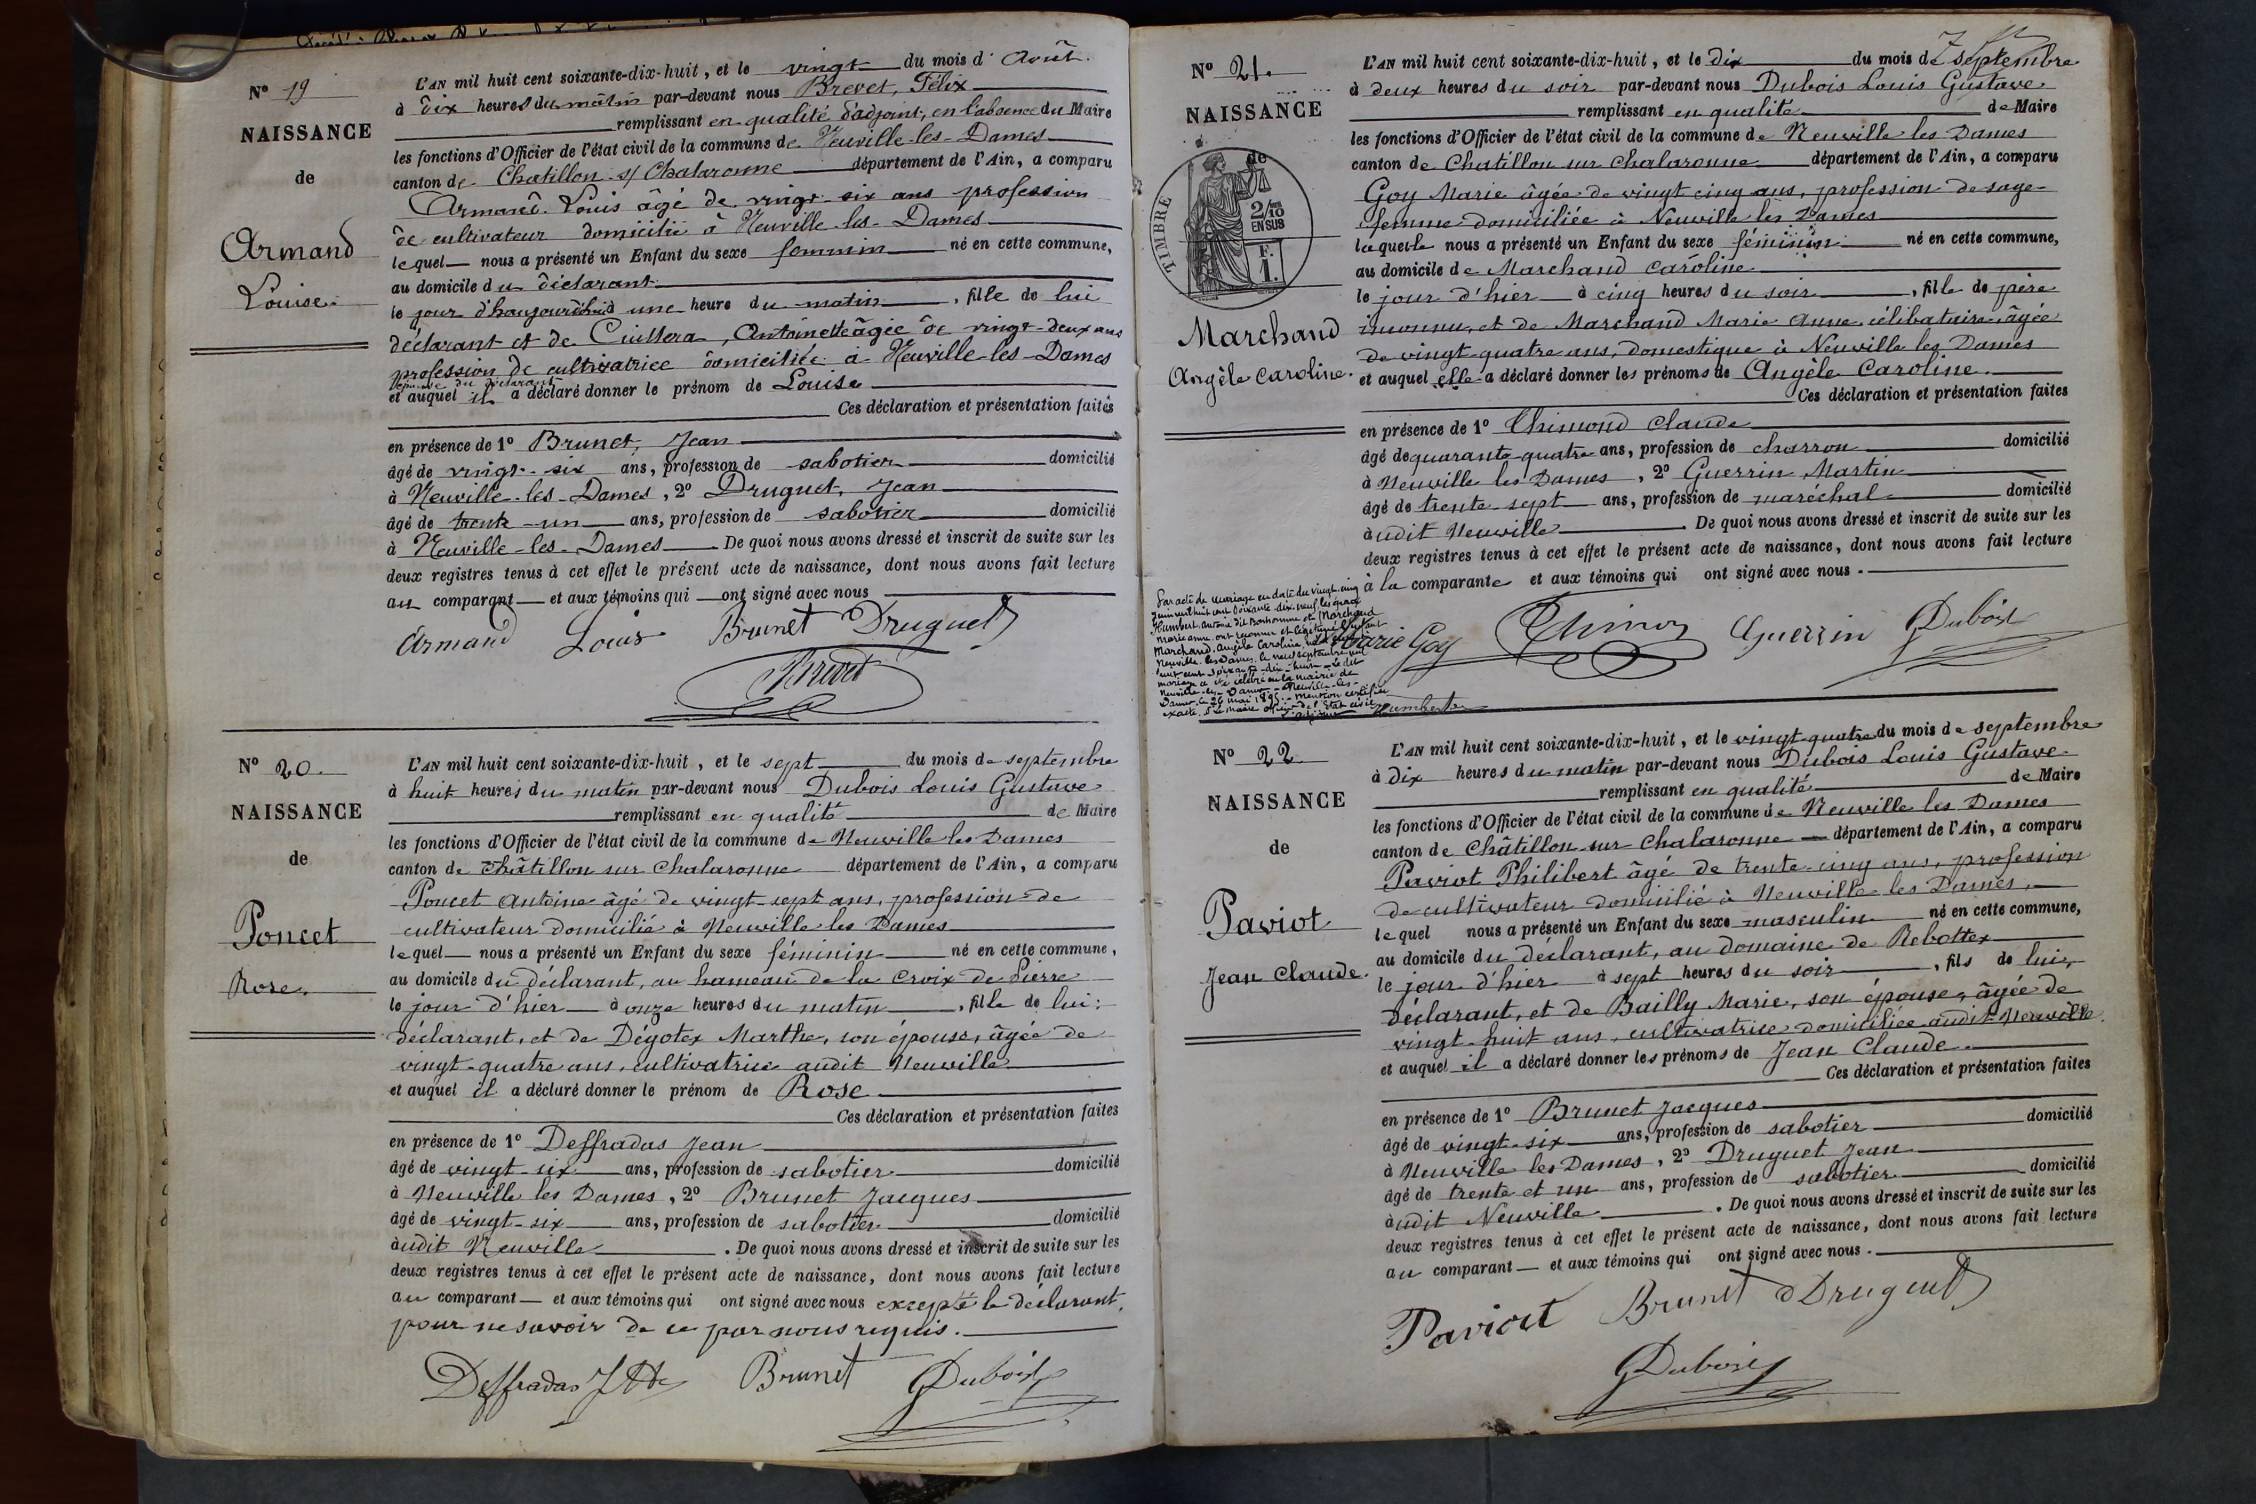 Nº 19
NAISSANCE
de
Armand
Louise
L'AN mil huit cent soixante-dix-huit, et le vingt du mois d'Août
à dix heures du matin par-devant nous Brevet, Félix
remplissant en qualité d'adjoint, en l'absence du Maire
les fonctions d'Officier de l'état civil de la commune de Neuville-les-Dames
canton de Chatillon s/ Chalaronne département de l'Ain, a comparu
Armand Louis âgé de vingt-six ans profession
de cultivateur domicilié à Neuville-les-Dames
lequel nous a présenté un Enfant du sexe féminin né en cette commune,
au domicile du déclarant
le jour d'haujourd'hui à une heure du matin, fille de lui
déclarant et de Cuillera, Antoinette âgée de vingt-deux ans
profession de cultivatrice domiciliée à Neuville-les-Dames
épouse du déclarant
et auquel il a déclaré donner le prénom de Louise
Ces déclaration et présentation faites
en présence de 1º Brunet, Jean
âgé de vingt-six ans, profession de sabotier domicilié
à Neuville-les-Dames, 2º Druguet, Jean
âgé de trente-un ans, profession de sabotier domicilié
à Neuville-les-Dames. De quoi nous avons dressé et inscrit de suite sur les
deux registres tenus à cet effet le présent acte de naissance, dont nous avons fait lecture
au comparant et aux témoins qui ont signé avec nous
Armand Louis Brunet Druguet
Brevet
Nº 20.
NAISSANCE
de
Poncet
Rose.
L'AN mil huit cent soixante-dix-huit, et le sept du mois de septembre
à huit heures du matin par-devant nous Dubois Louis Gustave
remplissant en qualité de Maire
les fonctions d'Officier de l'état civil de la commune de Neuville les Dames
canton de Châtillon sur Chalaronne département de l'Ain, a comparu
Poncet Antoine âgé de vingt-sept ans, profession de
cultivateur domicilié à Neuville les Dames
lequel nous a présenté un Enfant du sexe féminin né en cette commune,
au domicile du déclarant, au hameau de la Croix de Pierre
le jour d'hier à onze heures du matin, fille de lui
déclarant, et de Dégotex Marthe, son épouse, âgée de
vingt-quatre ans, cultivatrice audit Neuville
et auquel il a déclaré donner le prénom de Rose
Ces déclaration et présentation faites
en présence de 1º Deffradas Jean
âgé de vingt-six ans, profession de sabotier domicilié
à Neuville les Dames, 2º Brunet Jacques
âgé de vingt-six ans, profession de sabotier domicilié
audit Neuville. De quoi nous avons dressé et inscrit de suite sur les
deux registres tenus à cet effet le présent acte de naissance, dont nous avons fait lecture
au comparant et aux témoins qui ont signé avec nous excepté le déclarant,
pour ne savoir de ce par nous requis.
Deffradas Brunet GDubois
Nº 21.
NAISSANCE
de
TIMBRE
2/10
EN SUS
F.
1.
Marchand
Angèle Caroline.
L'AN mil huit cent soixante-dix-huit, et le dix du mois de septembre
à deux heures du soir par-devant nous Dubois Louis Gustave
remplissant en qualité de Maire
les fonctions d'Officier de l'état civil de la commune de Neuville les Dames
canton de Chatillon sur Chalaronne département de l'Ain, a comparu
Goy Marie âgée de vingt cinq ans, profession de sage-
femme domiciliée à Neuville les Dames
laquelle nous a présenté un Enfant du sexe féminin né en cette commune,
au domicile de Marchand Caroline
le jour d'hier à cinq heures du soir, fille de père
inconnu, et de Marchand Marie Anne, célibataire, âgée
de vingt-quatre ans, domestique à Neuville les Dames
et auquel elle a déclaré donner les prénoms de Angèle Caroline.
Ces déclaration et présentation faites
en présence de 1º Thimond Claude
âgé de quarante-quatre ans, profession de charron domicilié
à Neuville les Dames, 2º Guerrin Martin
âgé de trente-sept ans, profession de maréchal domicilié
audit Neuville. De quoi nous avons dressé et inscrit de suite sur les
deux registres tenus à cet effet le présent acte de naissance, dont nous avons fait lecture
à la comparante et aux témoins qui ont signé avec nous.
Par acte de mariage en date du vingt-cinq
Humbert antoine dit Bonhomme et Marchand
Marie anne, ont reconnu et légitimé l'enfant
Marchand, Angèle Caroline, née
Neuville-les-Dames, le neuf septembre mil
huit cent soixante-dix-huit. Le dit
mariage a été célébré en la mairie de
Neuville-les-Dames. Neuville-les-
Dames, le 26 mai 1895. Mention certifiée
exacte. Le maire officier de l'Etat civil
Humbert
Marie Goy Thimon Guerrin GDubois
Nº 22
NAISSANCE
de
Paviot
Jean Claude.
L'AN mil huit cent soixante-dix-huit, et le vingt-quatre du mois de septembre
à dix heures du matin par-devant nous Dubois Louis Gustave
remplissant en qualité de Maire
les fonctions d'Officier de l'état civil de la commune de Neuville les Dames
canton de Châtillon-sur Chalaronne département de l'Ain, a comparu
Paviot Philibert âgé de trente-cinq ans, profession
de cultivateur domicilié à Neuville-les Dames,
lequel nous a présenté un Enfant du sexe masculin né en cette commune,
au domicile du déclarant, au domaine de Rebottex
le jour d'hier à sept heures du soir, fils de lui,
déclarant, et de Bailly Marie, son épouse, âgée de
vingt-huit ans, cultivatrice domiciliée audit Neuville
et auquel il a déclaré donner les prénoms de Jean Claude.
Ces déclaration et présentation faites
en présence de 1º Brunet Jacques
âgé de vingt-six ans, profession de sabotier domicilié
à Neuville les Dames, 2º Druguet Jean
âgé de trente et un ans, profession de sabotier domicilié
audit Neuville. De quoi nous avons dressé et inscrit de suite sur les
deux registres tenus à cet effet le présent acte de naissance, dont nous avons fait lecture
au comparant et aux témoins qui ont signé avec nous.
Paviout Brunet Druguet
GDubois